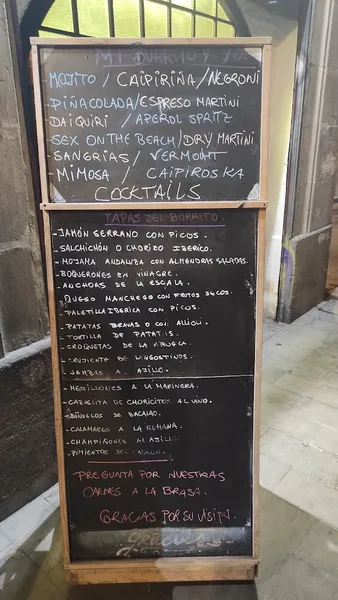 MI BURRITO Y YO.
MOJITO / CAIPIRIÑA / NEGRONI
- PIÑACOLADA / ESPRESO MARTINI
DAIQUIRI / APEROL SPRITZ
- SEX ON THE BEACH / DRY MARTINI
- SANGRIAS / VERMOUHT
- MIMOSA / CAIPIROSKA
COCKTAILS
TAPAS DEL BURRITO.
- JAMÓN SERRANO CON PICOS.
- SALCHICHÓN O CHORIZO IBERICO.
- MOJAMA ANDALUZA CON ALMENDRAS SALADAS.
- BOQUERONES EN VINAGRE.
- ANCHOAS DE LA ESCALA.
- QUESO MANCHEGO CON FRUTOS SECOS.
- PALETILLA IBERICA CON PICOS.
- PATATAS BRAVAS O CON ALLIOLI.
- TORTILLA DE PATATAS.
- CROQUETAS DE LA ABUELA.
- CRUJIENTE DE LANGOSTINOS.
- GAMBAS AL AJILLO.
- MEJILLONES A LA MARINERA.
- CAZUELITA DE CHORICITOS AL VINO.
- BUÑUELOS DE BACALAO.
- CALAMARES A LA ROMANA.
- CHAMPIÑONES AL AJILLO.
- PIMIENTOS DEL PADRÓN.
PREGUNTA POR NUESTRAS
CARNES A LA BRASA.
GRACIAS POR SU VISITA.
gracias